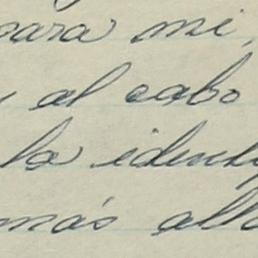 para mi,
al cabo
la identi
más allá